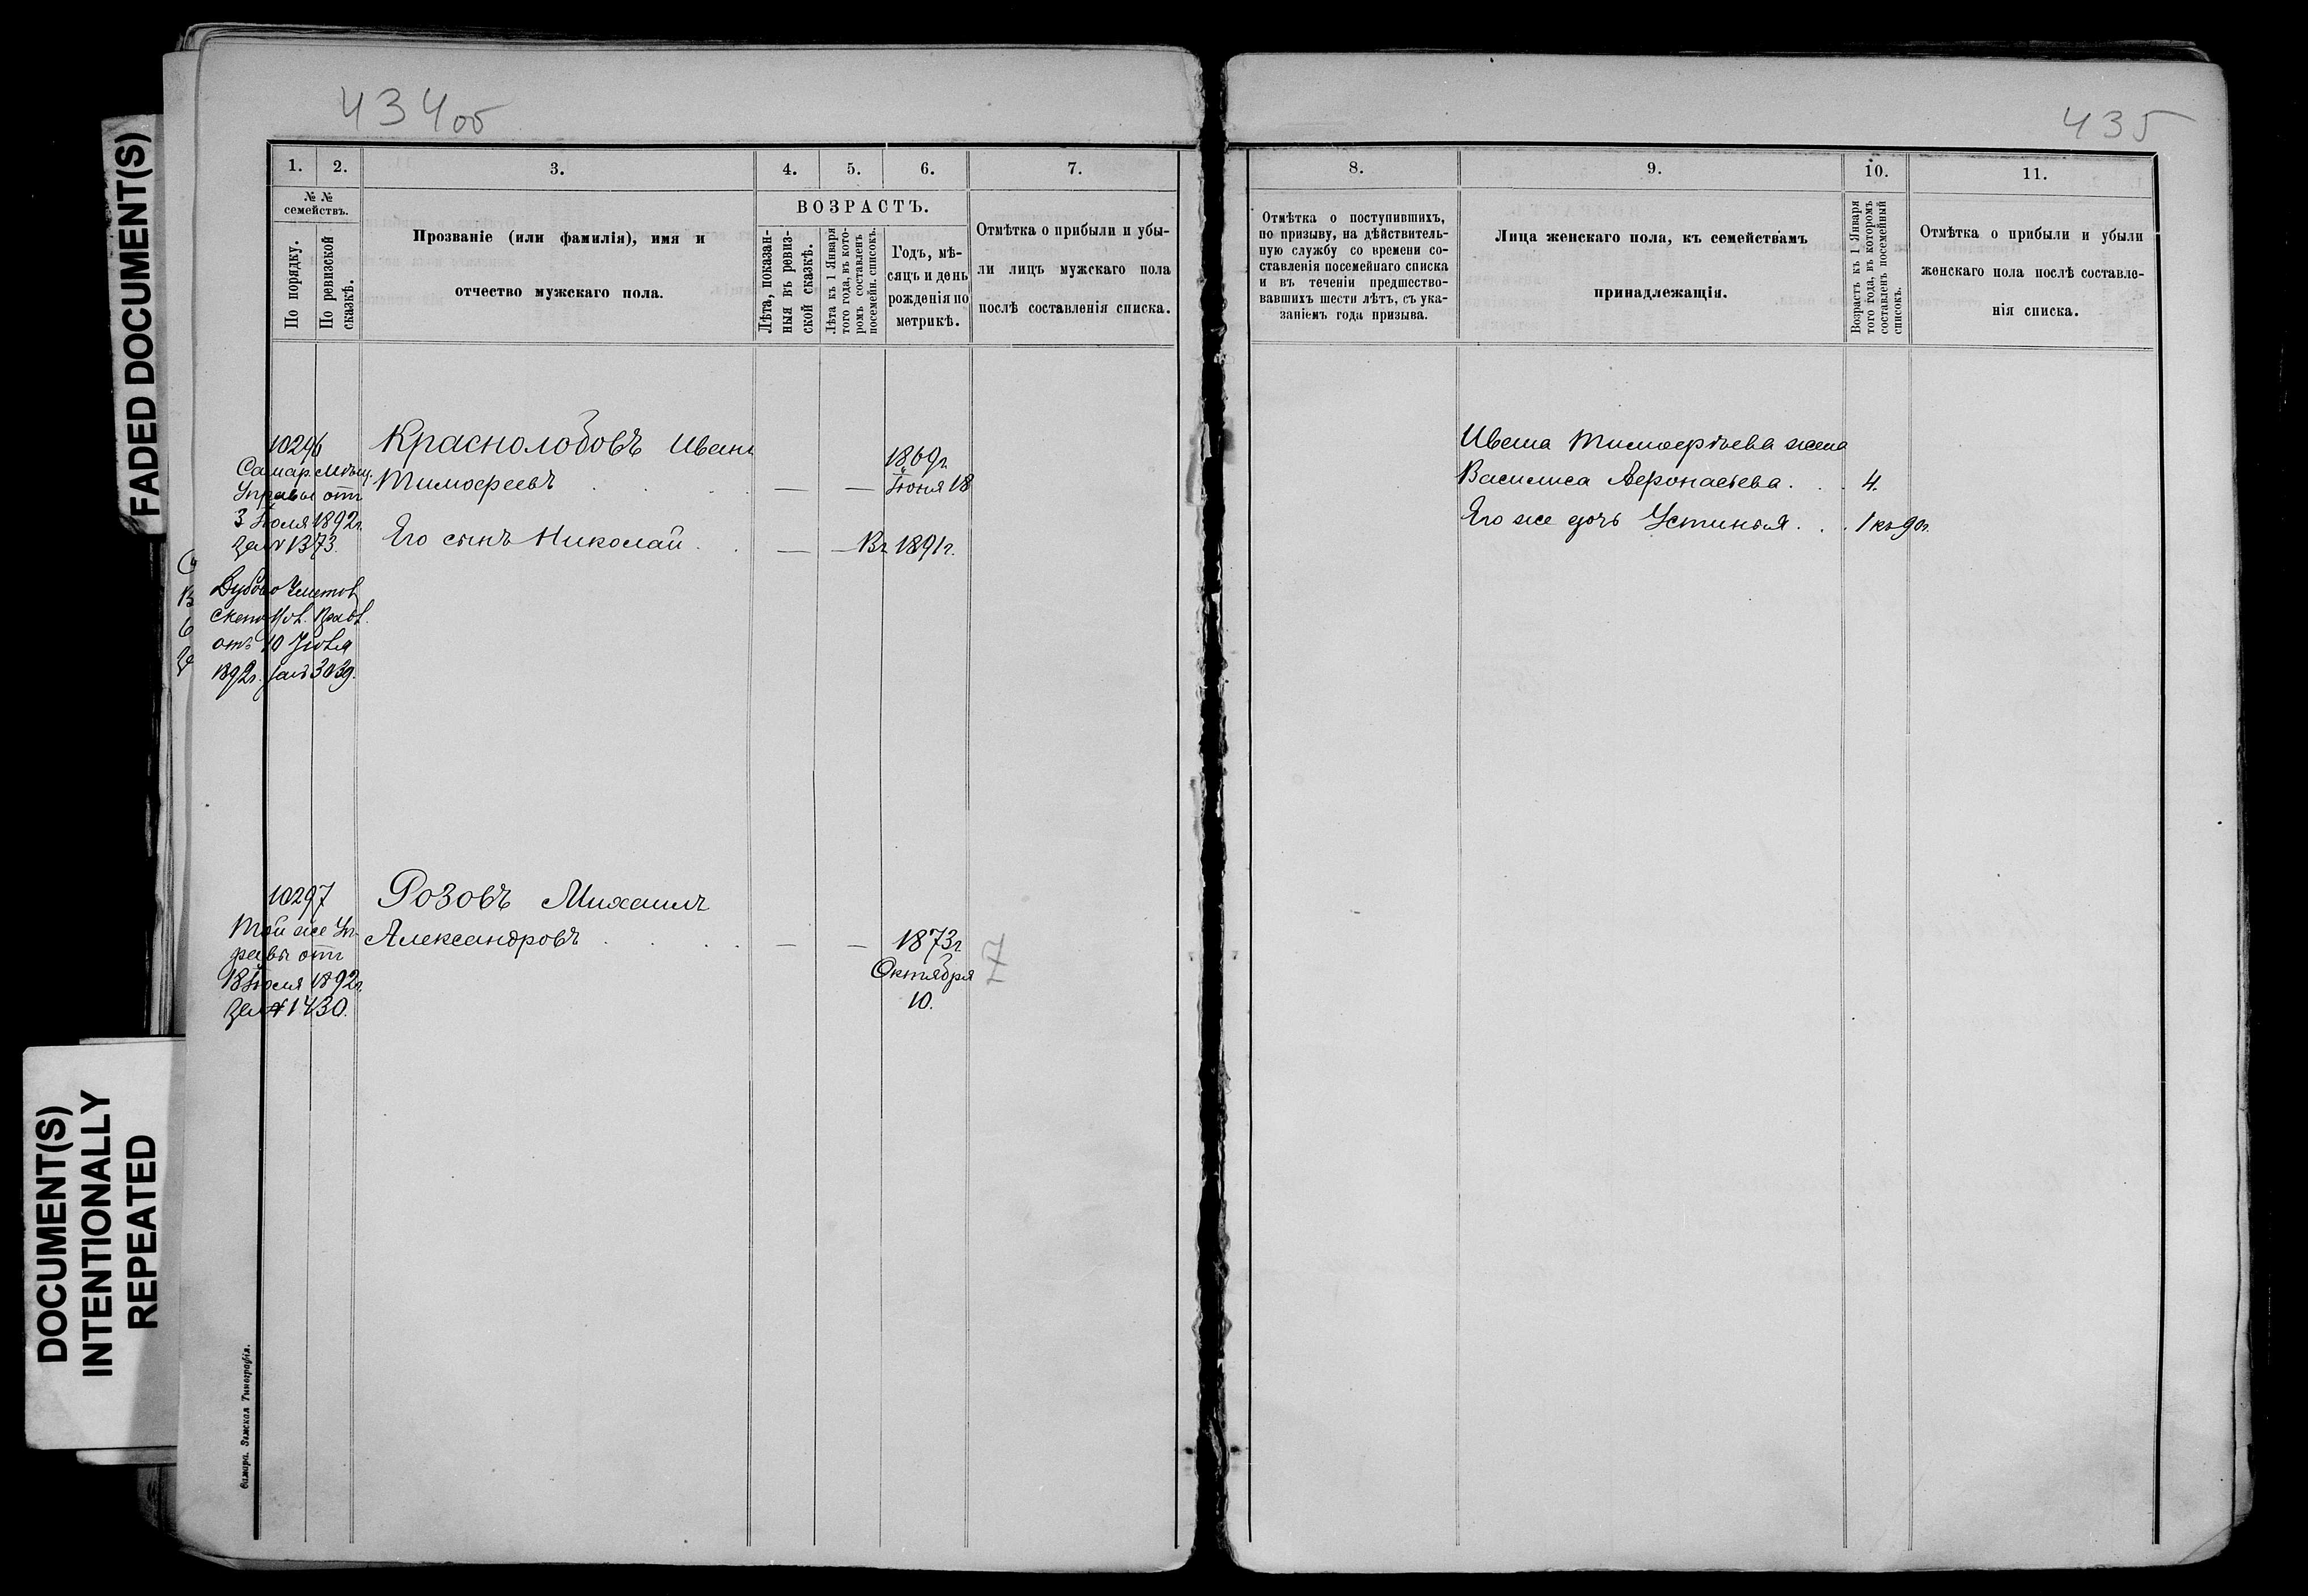 434 об
435
FADED DOCUMENT(S)
DOCUMENT(S)
INTENTIONALLY
REPEATED
1. 2. 3. 4. 5. 6. 7.
№ № семействъ.
По порядку.
По ревизской сказкѣ.
Прозваніе (или фамилія), имя и
отчество мужскаго пола.
ВОЗРАСТЪ.
Лѣта, показан-
ныя въ ревиз-
ской сказкѣ.
Лѣта къ 1 Января
того года, въ кото-
ромъ составленъ
посемейн. списокъ.
Годъ, мѣ-
сяцъ и день
рожденія по
метрикѣ.
Отмѣтка о прибыли и убы-
ли лицъ мужскаго пола
послѣ составленія списка.
10296
Самар. Мѣщ.
Управы отъ
3 Іюля 1892г.
за № 1373.
отъ 10 Іюля
1892г. за № 3039.
Краснолобовъ Иванъ
Тимофеевъ
1869г.
Іюня 18
Его сынъ Николай
1891г.
10297
Той же Уп-
равы отъ
18 Іюля 1892г.
за № 1430.
Розовъ Михаилъ
Александровъ
1873г.
Октября
10.
7
Самара. Земская Типографія.
8. 9. 10. 11.
Отмѣтка о поступившихъ,
по призыву, на дѣйствитель-
ную службу со времени со-
ставленія посемейнаго списка
и въ теченіи предшество-
вавшихъ шести лѣтъ, съ ука-
заніемъ года призыва.
Лица женскаго пола, къ семействамъ
принадлежащія.
Возрастъ къ 1 Января
того года, въ которомъ
составленъ посемейный
списокъ.
Отмѣтка о прибыли и убыли
женскаго пола послѣ составле-
нія списка.
Ивана Тимофеева жена
Василиса Афонасьева. 4.
Его же дочь Устинья